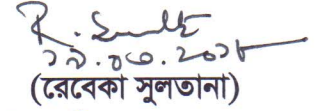 ১৯.০৩.২০১৮
(রেবেকা সুলতানা)